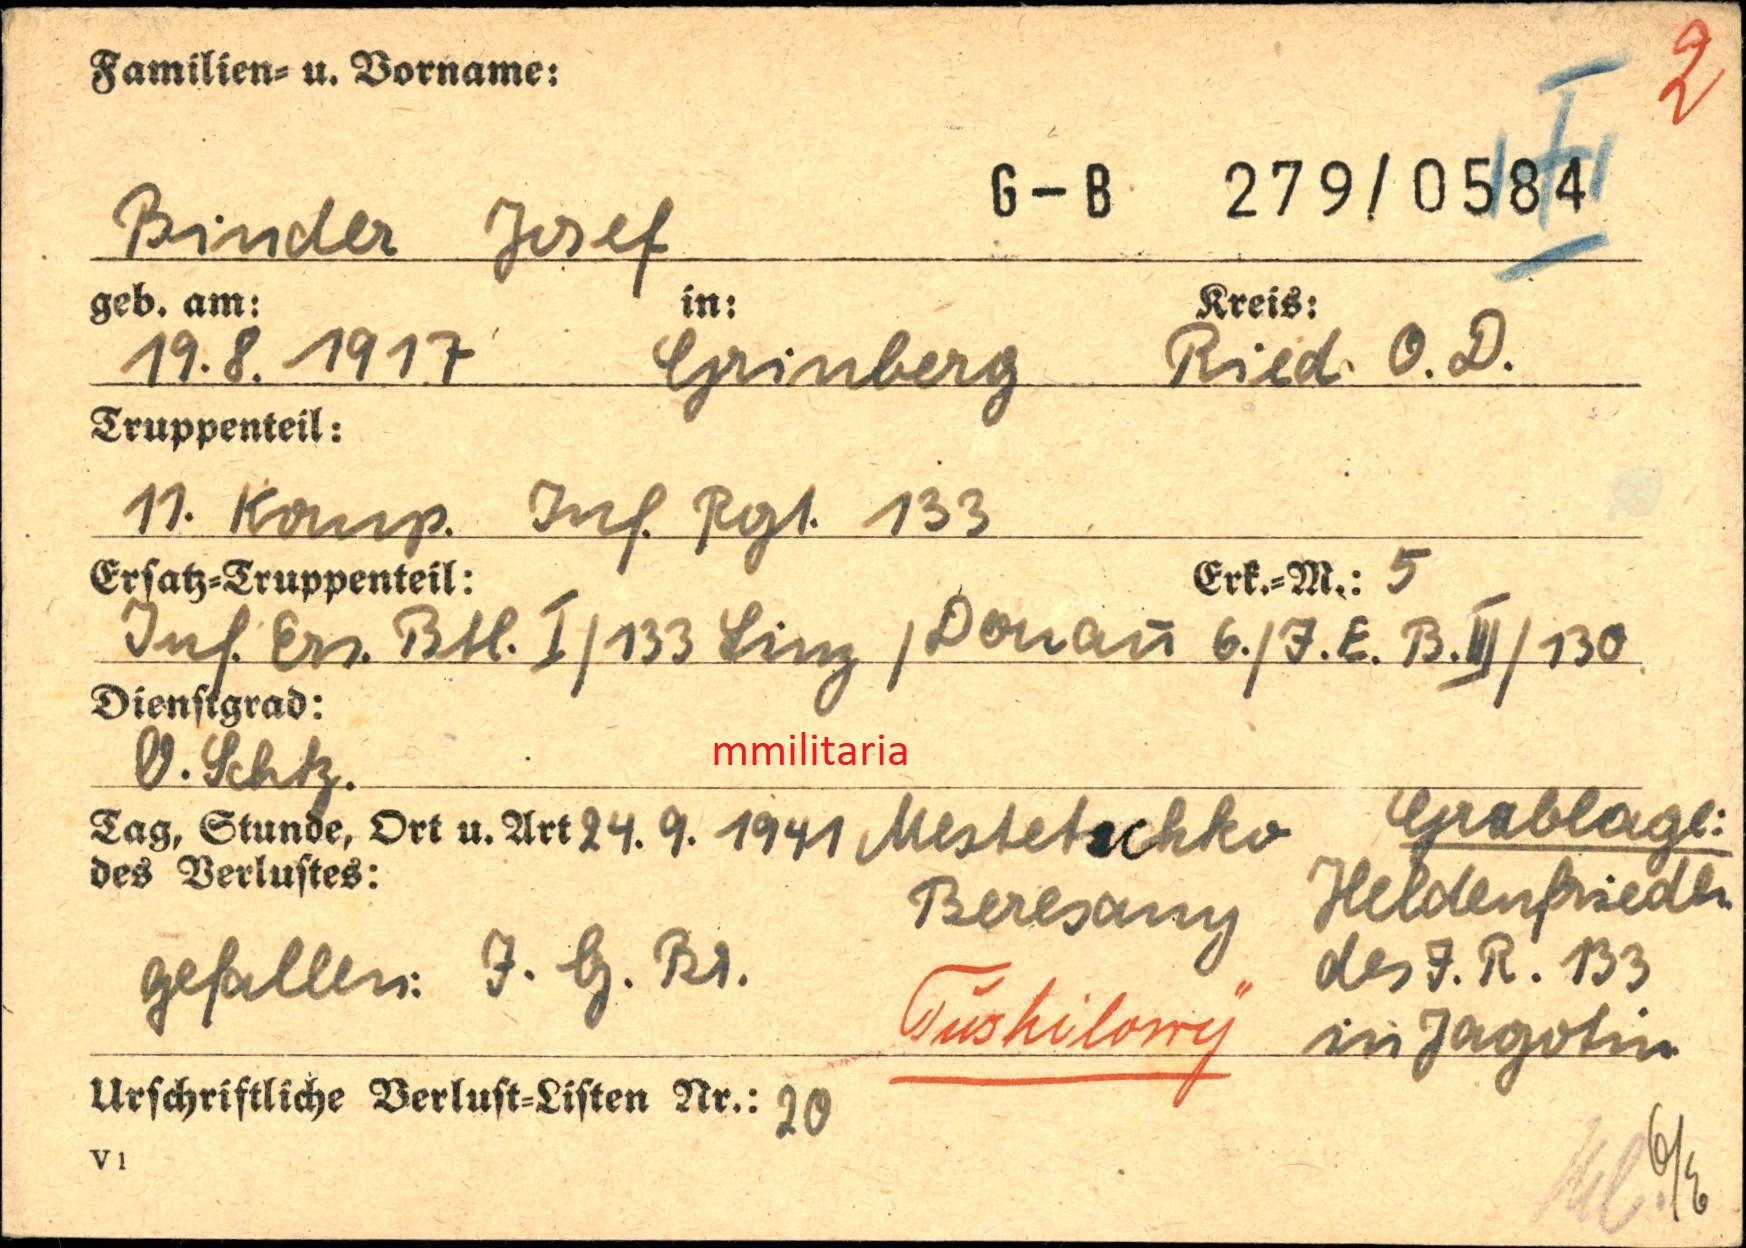 Familien- u. Vorname:
2
I
G-B 279/0584
Binder Josef
geb. am: in: Kreis:
19.8. 1917 Grinberg Ried. O. D.
Truppenteil:
11. Komp. Inf. Rgt. 133
Ersatz-Truppenteil: Erk.-M.: 5
Inf. Ers. Btl. I/133 Linz/Donau 6./J.E.B.III/130
Dienstgrad:
O.Schtz.
mmilitaria
Tag, Stunde, Ort u. Art 24.9.1941 Mestetschko Grablage:
des Verlustes:
Beresany Heldenfriedh.
gefallen: J. G. Br. des J.R. 133
Tuskilowy in Jagotin
Urschriftliche Verlust-Listen Nr.: 20
V 1